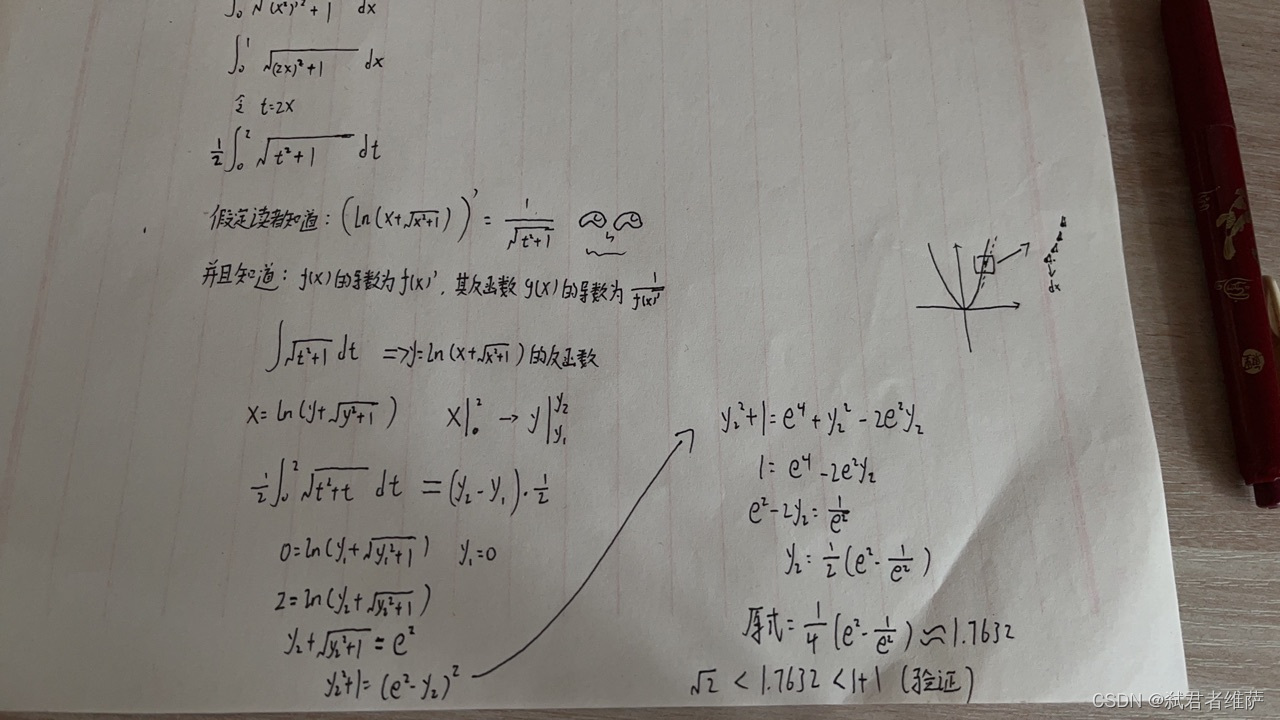 ∫₀ √(x²)'² + 1 dx
∫₀¹ √(2x)²+1 dx
令 t=2x
1/2 ∫₀² √t²+1 dt
假定读者知道: (ln(x+√x²+1))' = 1/√t²+1
并且知道: f(x)的导数为f(x)', 其反函数 g(x)的导数为 1/f(x)'
∫√t²+1 dt => y=ln(x+√x²+1)的反函数
x=ln(y+√y²+1) x|₀² → y|y₁y₂
1/2 ∫₀² √t²+t dt = (y₂-y₁)·1/2
0=ln(y₁+√y₁²+1) y₁=0
2=ln(y₂+√y₂²+1)
y₂+√y₂²+1=e²
y₂²+1=(e²-y₂)²
dx
y₂²+1=e⁴+y₂²-2e²y₂
1=e⁴-2e²y₂
e²-2y₂=1/e²
y₂=1/2(e²-1/e²)
原式=1/4(e²-1/e²)≈1.7632
√2<1.7632<1+1 (验证)
CSDN @弑君者维萨